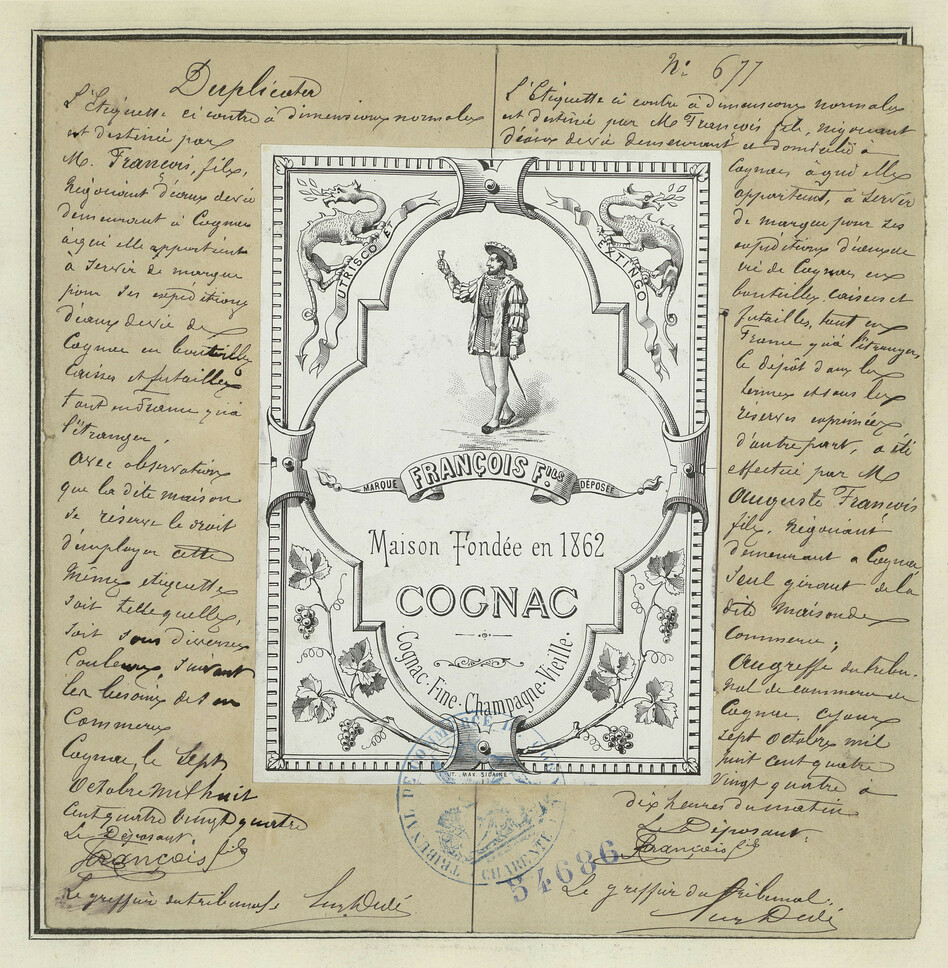 Duplicata
L'Etiquette ci contre à dimensions normales
est destinée par
M. François, fils,
Négociant d'eaux de vie
demeurant à Cognac
à qui elle appartient
à servir de marque
pour ses expéditions
d'eaux de vie de
Cognac en bouteilles
Caisses et futailles
tant en France qu'à
l'étranger,
avec observation
que la dite maison
se réserve le droit
d'employer cette
même étiquette
soit telle quelle,
soit sous diverses
Couleurs, suivant
les besoins de son
Commerce
Cognac, le Sept
Octobre mil huit
cent quatre vingt quatre
Le Déposant
François fils
Le greffier du tribunal
N° 677
L'Etiquette ci contre à dimensions normales
est destiné par M. François fils, négociant
d'eaux de vie demeurant et domicilié à
Cognac à qui elle
appartient, à servir
de marque pour ses
expéditions d'eaux de
vie de Cognac en
bouteilles, caisses et
futailles, tant en
France qu'à l'étranger,
le dépôt dans les
termes et sous les
réserves exprimées
d'autre part, a été
effectué par M
Auguste François
fils, Négociant
demeurant a Cognac
Seul gérant de la
dite Maison de
Commerce,
Au greffe du tribu-
nal de commerce de
Cognac, ce jour
sept Octobre mil
huit cent quatre
vingt quatre à
dix heures du matin
Le Déposant.
François fils
Le greffier du tribunal.
UTRISCO ET
EXTINGO
MARQUE FRANÇOIS FILS. DÉPOSÉE
Maison Fondée en 1862
COGNAC
Cognac·Fine·Champagne·Vieille·
LIT. MAX. SICAIRE
TRIBUNAL DE COMMERCE
CHARENTE
54686